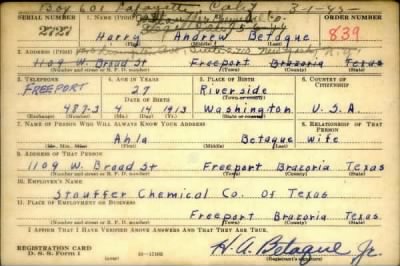 Box 601 Lafayette, Calif 3-1-43-
SERIAL NUMBER 1. NAME (Print)
2828 Harry Andrew Betaque 839
2. ADDRESS (Print)
1109 W. Broad St Freeport Brazoria Texas
(Number and street or R. F. D. number) (Town) (County) (State)
3. TELEPHONE 4. AGE IN YEARS 5. PLACE OF BIRTH 6. COUNTRY OF CITIZENSHIP
FREEPORT 27 Riverside
DATE OF BIRTH
487-J 4 14 1913 Washington U.S.A.
7. NAME OF PERSON WHO WILL ALWAYS KNOW YOUR ADDRESS 8. RELATIONSHIP OF THAT PERSON
Ahla Betaque wife
9. ADDRESS OF THAT PERSON
1109 W. Broad St Freeport Brazoria Texas
(Number and street or R. F. D. number) (Town) (County) (State)
10. EMPLOYER'S NAME
Stauffer Chemical Co. of Texas
11. PLACE OF EMPLOYMENT OR BUSINESS
Freeport Brazoria Texas
(Number and street or R. F. D. number) (Town) (County) (State)
I AFFIRM THAT I HAVE VERIFIED ABOVE ANSWERS AND THAT THEY ARE TRUE.
REGISTRATION CARD
D. S. S. Form 1
H. A. Betaque Jr.
(Registrant's signature)